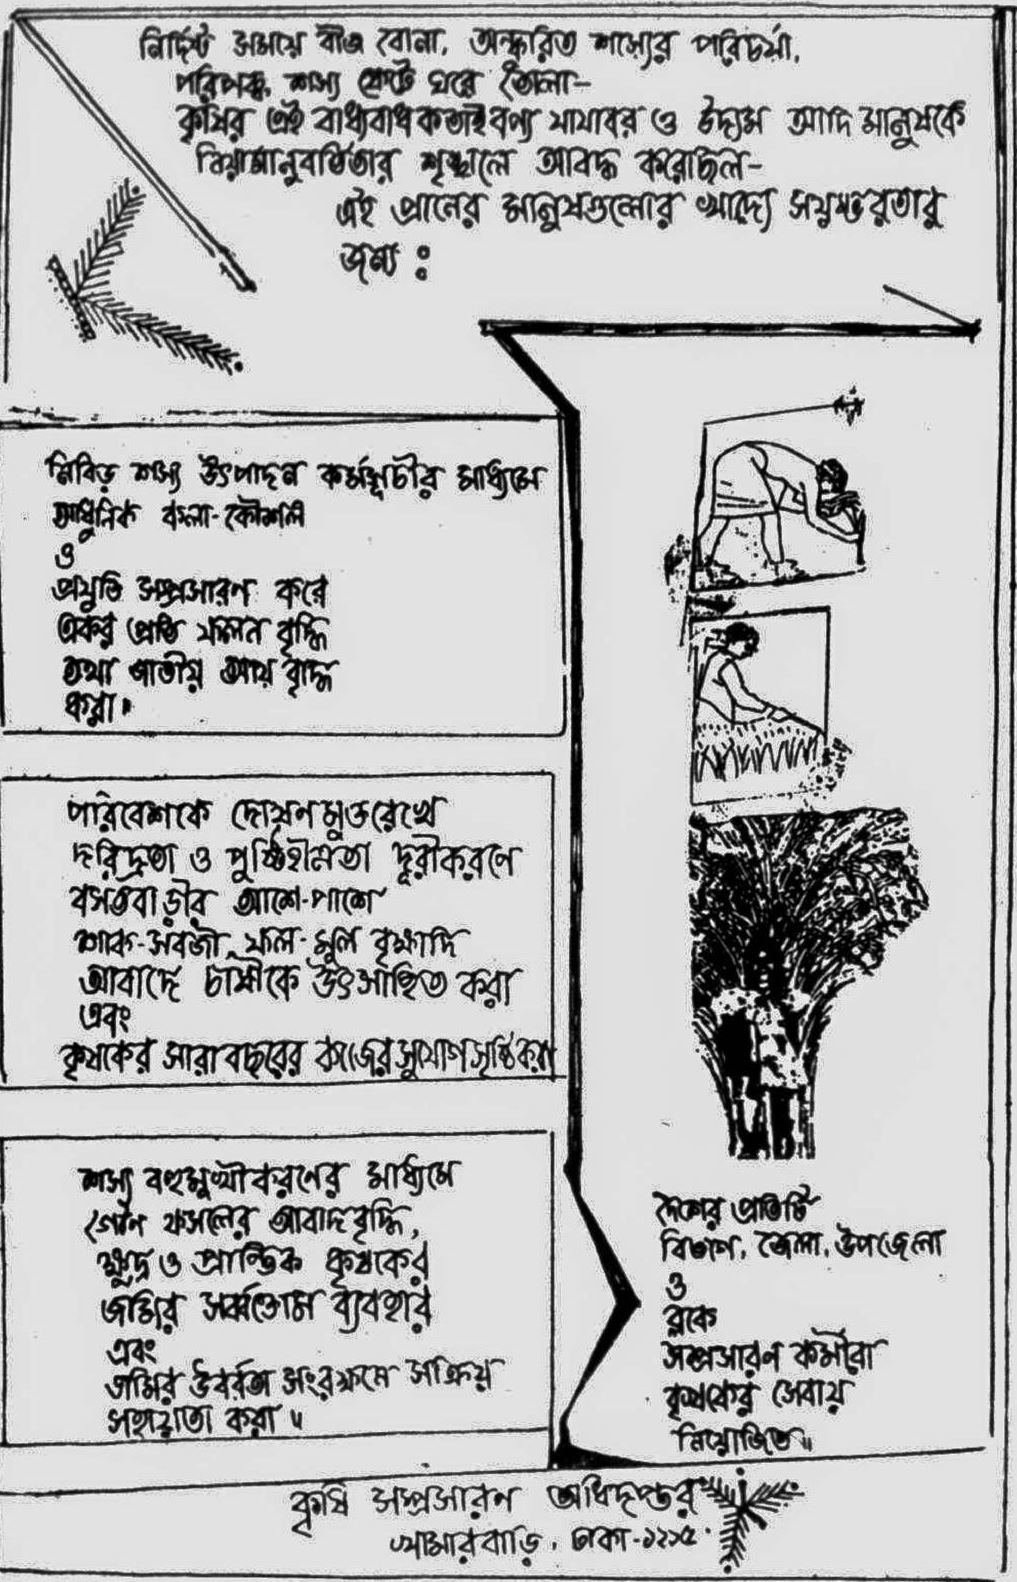 নির্দিষ্ট সময়ে বীজ বোনা, অঙ্কুরিত শস্যের পরিচর্যা,
পরিপক্ক শস্য কেটে ঘরে তোলা-
কৃষির এই বাধ্যবাধকতাই বণ্য যাযাবর ও উদ্যম আদি মানুষকে
নিয়মানুবর্তিতার শৃঙ্খলে আবদ্ধ করেছিল-
এই প্রানের মানুষগুলোর খাদ্যে সয়ম্ভরতার
জন্য :
নিবিড় শস্য উৎপাদন কর্মসূচীর মাধ্যমে
আধুনিক কলা-কৌশল
ও
প্রযুক্তি সম্প্রসারণ করে
একর প্রতি ফলন বৃদ্ধি
তথা জাতীয় আয় বৃদ্ধি
করা।
পরিবেশকে দোষনমুক্তরেখে
দরিদ্রতা ও পুষ্টিহীনতা দূরীকরণে
বসতবাড়ীর আশে-পাশে
শাক-সবজী, ফল-মুল বৃক্ষাদি
আবাদে চাষীকে উৎসাহিত করা
এবং
কৃষকের সারাবছরের কাজের সুযোগ সৃষ্টি করা
শস্য বহুমুখীকরণের মাধ্যমে
গৌন ফসলের আবাদ বৃদ্ধি,
ক্ষুদ্র ও প্রান্তিক কৃষকের
জমির সর্ব্বত্তোম ব্যবহার
এবং
জমির উর্বরতা সংরক্ষনে সক্রিয়
সহায়তা করা॥
দেশের প্রতিটি
বিভাগ, জেলা, উপজেলা
ও
ব্লকে
সম্প্রসারণ কর্মীরা
কৃষকের সেবায়
নিয়োজিত॥
কৃষি সম্প্রসারণ অধিদপ্তর
খামারবাড়ি, ঢাকা-১২১৫